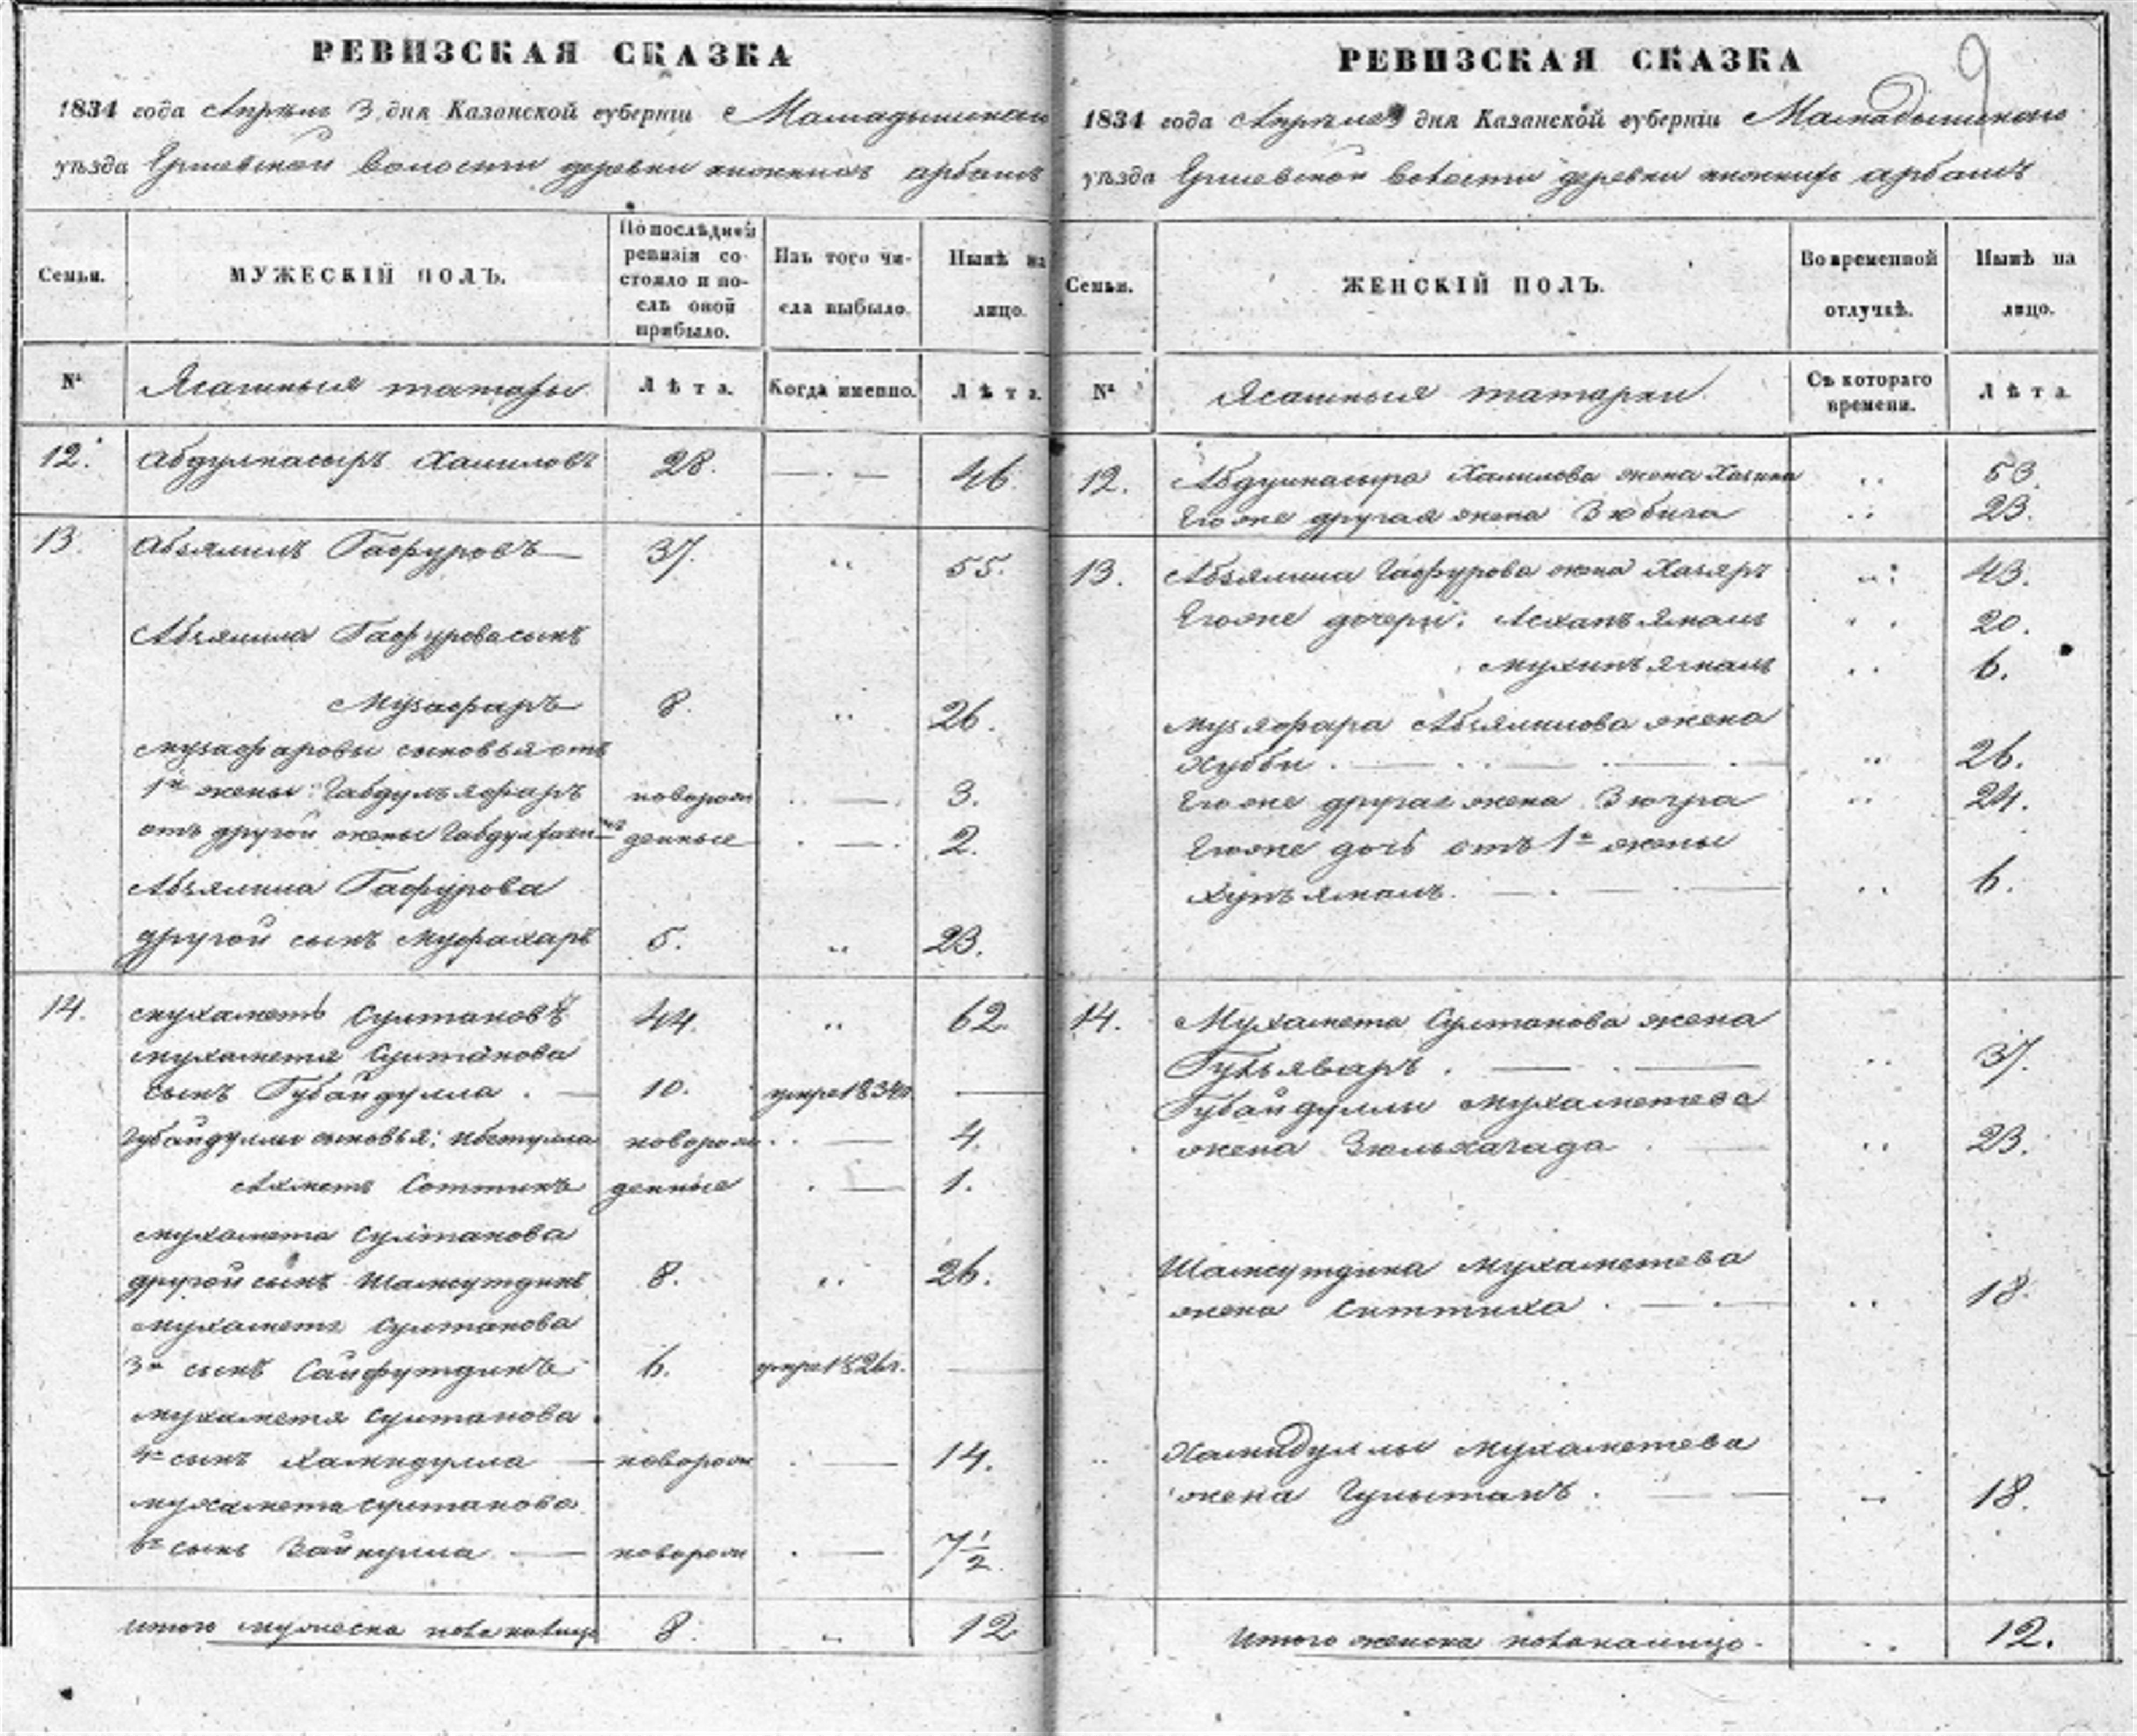 РЕВИЗСКАЯ СКАЗКА
1834 года Апрѣля 3 дня Казанской губерніи Мамадышскаго
уѣзда волости деревни нижнихъ арбашъ
Семьи.
МУЖЕСКІЙ ПОЛЪ.
По послѣдней ревизіи состояло и послѣ оной прибыло.
Изъ того числа выбыло.
Нынѣ на лицо.
№
Ясашныя татары
Лѣта.
Когда именно.
Лѣта.
12. Абдулнасыръ Халиловъ 28. 46.
13. Абзялилъ Гафуровъ 37. 55.
Абзялила Гафурова сынъ
Музафаръ 8. 26.
музафаровы сыновья отъ
1й жены: Габдулъяфаръ новорож 3.
отъ другой жены денные 2.
Абзялила Гафурова
другой сынъ Муфахаръ 5. 23.
14. мухаметъ Султановъ 44. 62.
мухаметя Султанова
сынъ Губайдулла 10. умре 1834г. —
Губайдуллы сыновья: новорож 4.
Ахметъ денные 1.
мухамета Султанова
другой сынъ Шамсутдинъ 8. 26.
мухаметя Султанова
3й сынъ Сайфутдинъ 6. умре 1826г. —
мухаметя Султанова
4й сынъ Хамидулла новорож 14.
мухамета султанова
сынъ Зайнулла новорож 7 1/2
итого мужеска пола налицо 8. 12
РЕВИЗСКАЯ СКАЗКА
9
1834 года Апрѣля 3 дня Казанской губерніи Мамадышскаго
уѣзда волости деревни нижнихъ арбашъ
Семьи.
ЖЕНСКІЙ ПОЛЪ.
Во временной отлучкѣ.
Нынѣ на лицо.
№
Ясашныя татарки
Съ котораго времени.
Лѣта.
12. Абдулнасыра Халилова жена 53.
Егоже другая жена Зюбига 23.
13. Абзялила Гафурова жена Хазяръ 43.
Егоже дочери: Асхапъямаль 20.
6.
музяфара Абзялилова жена
Хубби. 26.
Егоже другая жена Зюгра 24.
Егоже дочь отъ 1й жены
6.
14. Мухамета Султанова жена
Гульяваръ. 37.
Губайдуллы мухаметева
жена 23.
Шамсутдина мухаметева
жена Ситтика 18.
Хамидуллы мухаметева
жена Гулыстанъ. 18.
Итого женска пола налицо. 12.